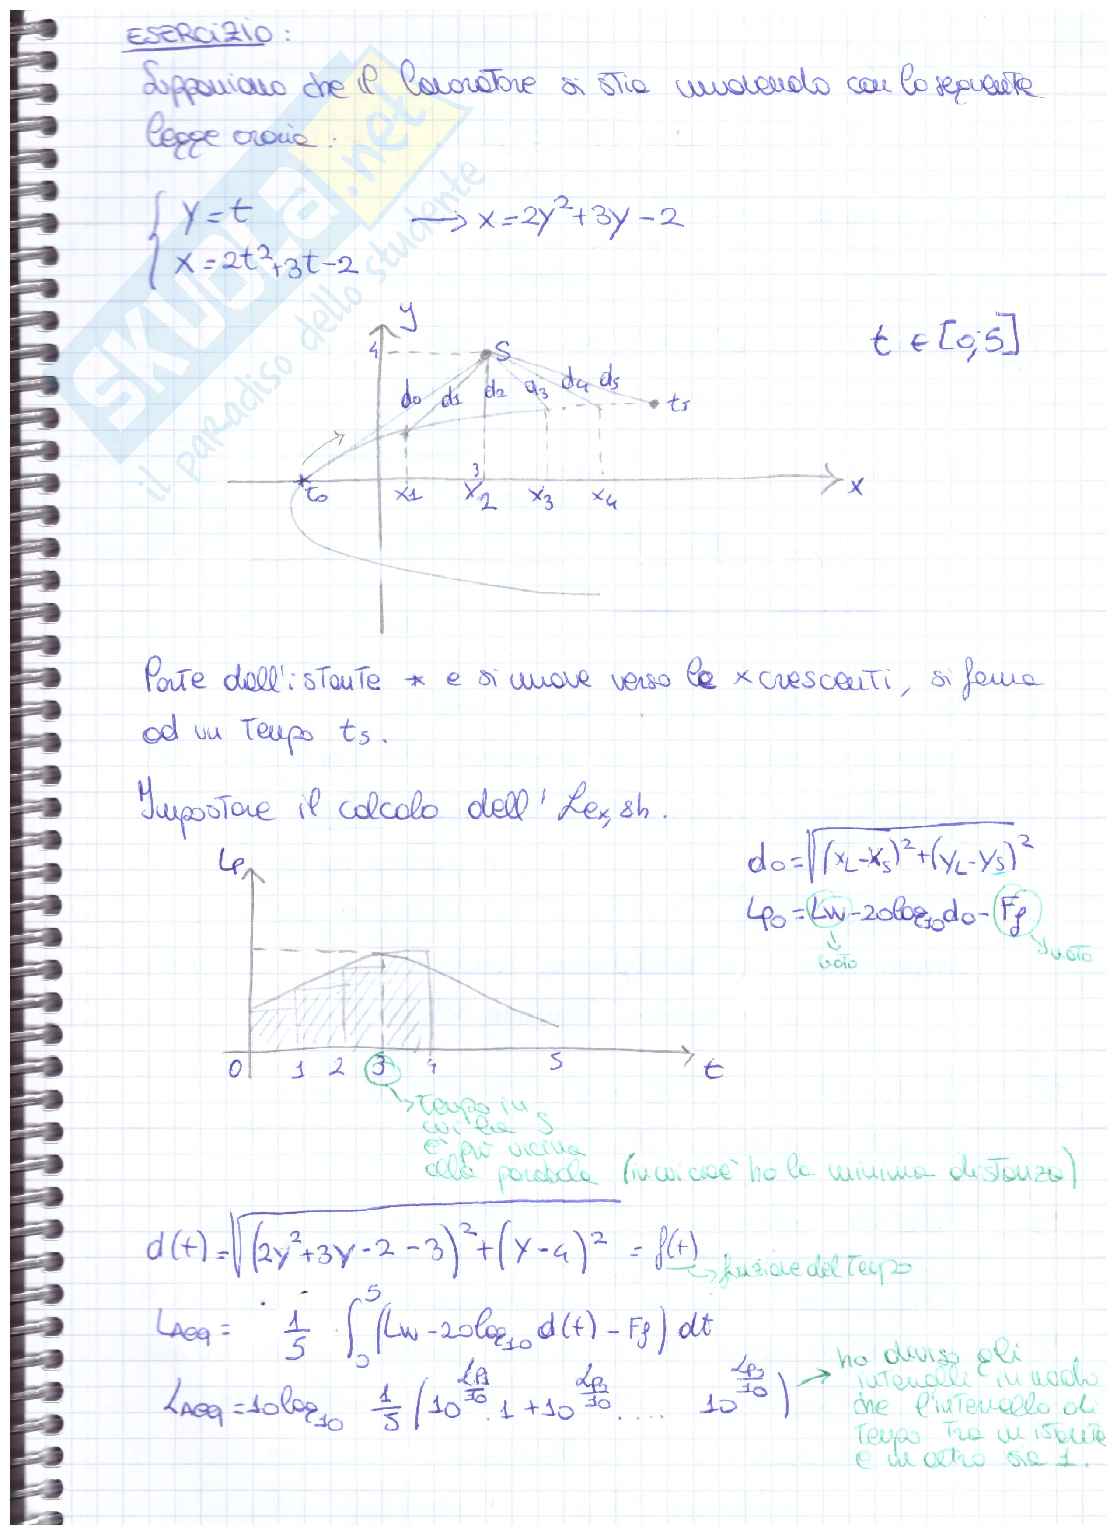 ESERCIZIO:
Supponiamo che il lavoratore si stia muovendo con la seguente
legge oraria:
{ y = t → x = 2y² + 3y - 2
x = 2t² + 3t - 2
SKUOLA.net
il paradiso dello studente
y
t ∈ [0,5]
4 S
d0 d1 d2 d3 d4 d5 t5
3
t0 x1 x2 x3 x4 x
Parte dall'istante * e si muove verso le x crescenti, si ferma
ad un tempo t5.
Impostare il calcolo dell' Lex,8h.
Lp
d0 = √(xL-xS)² + (yL-yS)²
Lp0 = Lw - 20log10 d0 - Ff
noto noto
0 1 2 3 4 5 t
→ tempo in
cui la S
è più vicina
alla parabola (in cui cioè ho la minima distanza)
d(t) = √(2y² + 3y - 2 - 3)² + (y - 4)² = f(t)
→ funzione del tempo
LAeq = 1/5 · ∫₀⁵ (Lw - 20log10 d(t) - Ff) dt
LAeq = 10log10 1/5 (10^(Lp1/10) · 1 + 10^(Lp2/10) · .... 10^(Lp5/10))
→ ho diviso gli
intervalli in modo
che l'intervallo di
tempo tra un istante
e un altro sia 1.